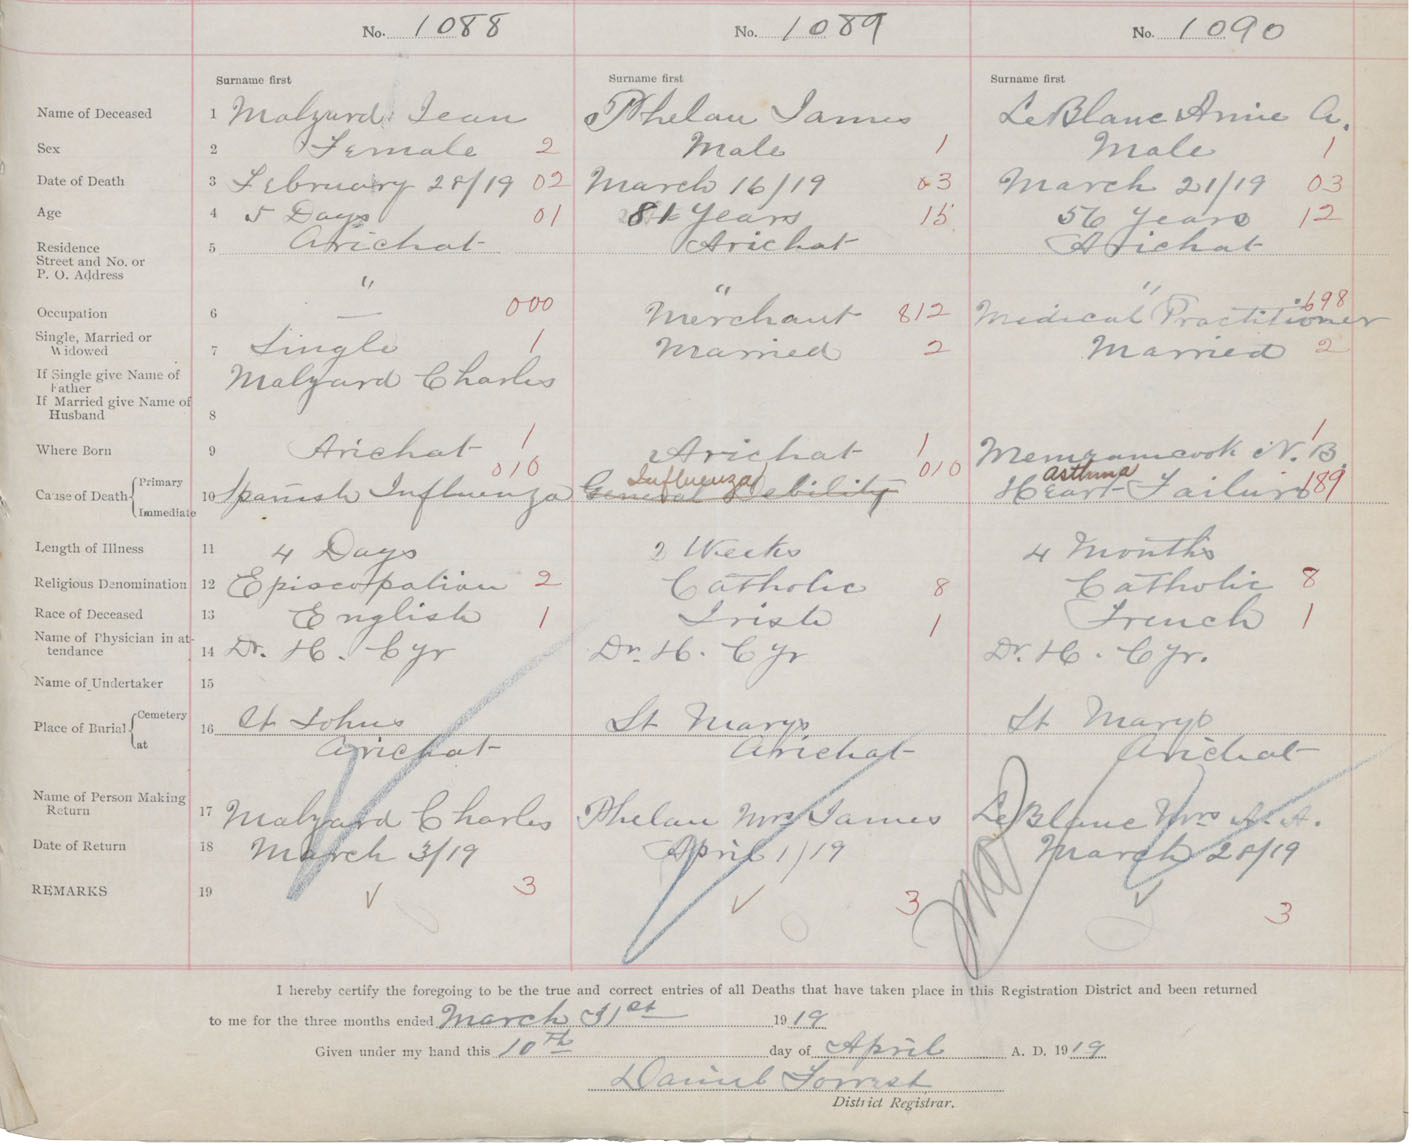 No. 1088 No. 1089 No. 1090
Surname first Surname first Surname first
Name of Deceased 1 Malzard Jean Phelan James LeBlanc Amie A.
Sex 2 Female 2 Male 1 Male 1
Date of Death 3 February 28/19 02 March 16/19 03 March 21/19 03
Age 4 5 Days 01 81 Years 15 56 Years 12
Residence 5 Arichat Arichat Arichat
Street and No. or
P. O. Address
" " "
Occupation 6 — 000 Merchant 812 Medical Practitioner 698
Single, Married or
Widowed 7 Single 1 Married 2 Married 2
If Single give Name of
Father Malzard Charles
If Married give Name of
Husband 8
Where Born 9 Arichat 1 Arichat 1 Memramcook N. B. 1
Cause of Death Primary 010 Influenza 010 asthma
10 Spanish Influenza General Debility Heart Failure 189
Immediate
Length of Illness 11 4 Days 2 Weeks 4 Months
Religious Denomination 12 Episcopalian 2 Catholic 8 Catholic 8
Race of Deceased 13 English 1 Irish 1 French 1
Name of Physician in at-
tendance 14 Dr. H. Cyr Dr. H. Cyr Dr. H. Cyr.
Name of Undertaker 15
Place of Burial Cemetery 16 St Johns St Marys St Marys
at Arichat Arichat Arichat
Name of Person Making
Return 17 Malzard Charles Phelan Mrs James LeBlanc Mrs A. A.
Date of Return 18 March 3/19 April 1/19 March 28/19
REMARKS 19 3 3 3
I hereby certify the foregoing to be the true and correct entries of all Deaths that have taken place in this Registration District and been returned
to me for the three months ended March 31st 1919
Given under my hand this 10th day of April A. D. 1919
Daniel Forrest
District Registrar.